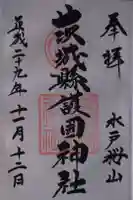 奉拝
水戸桜山
茨城縣護国神社
平成二十九年十一月十二日